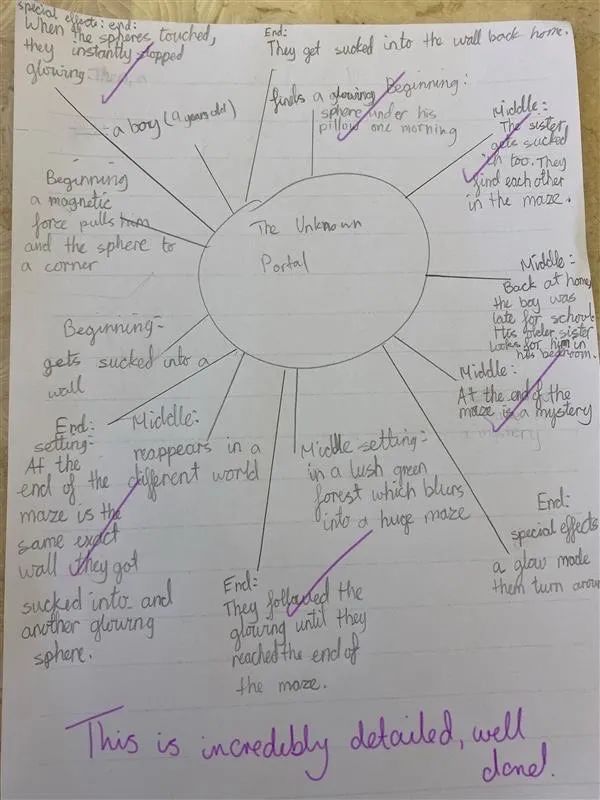 special effects: end:
When the spheres touched,
they instantly stopped
glowing.
End:
They get sucked into the wall back home.
a boy (9 years old)
Beginning:
finds a glowing
sphere under his
pillow one morning
Middle:
The sister
gets sucked
in too. They
find each other
in the maze.
Beginning
a magnetic
force pulls him
and the sphere to
a corner
The Unknown
Portal
Middle:
Back at home,
the boy was
late for school.
His older sister
looks for him in
his bedroom.
Beginning:
gets sucked into a
wall
Middle:
At the end of the
maze is a mystery
End:
setting:
At the
end of the
maze is the
same exact
wall they got
sucked into and
another glowing
sphere.
Middle:
reappears in a
different world
Middle setting:
in a lush green
forest which blurs
into a huge maze
End:
special effects
a glow made
them turn around
End:
They followed the
glowing until they
reached the end of
the maze.
This is incredibly detailed, well
done!